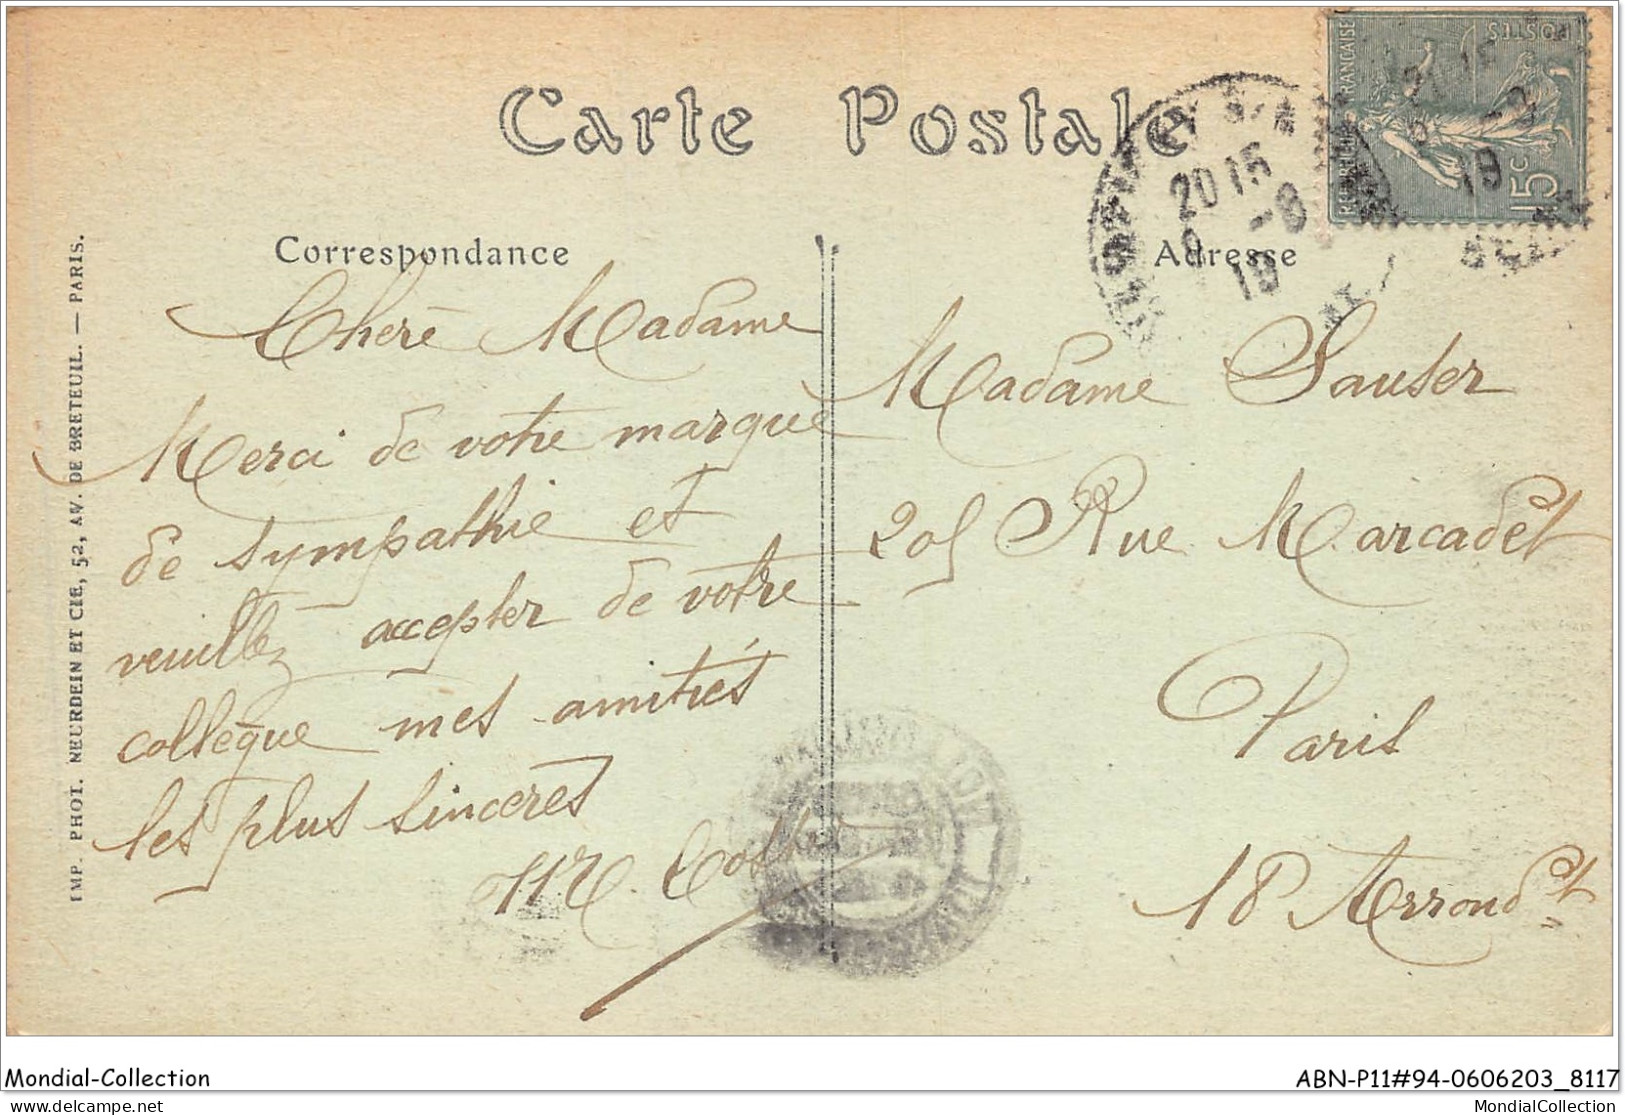 Carte Postale
Correspondance
Adresse
Cheré Madame
Merci de votre marque
de sympathie et
veuillez accepter de votre
collègue mes amitiés
les plus sincères
Madame Sauser
205 Rue Marcadet
Paris
18 Arrondet
IMP. PHOT. NEURDEIN ET CIE, 52, AV. DE BRETEUIL. — PARIS.
REPUBLIQUE FRANÇAISE
POSTES
15c
20 15
-8
19
Mondial-Collection
ABN-P11#94-0606203_8117
delcampe.net
MondialCollection